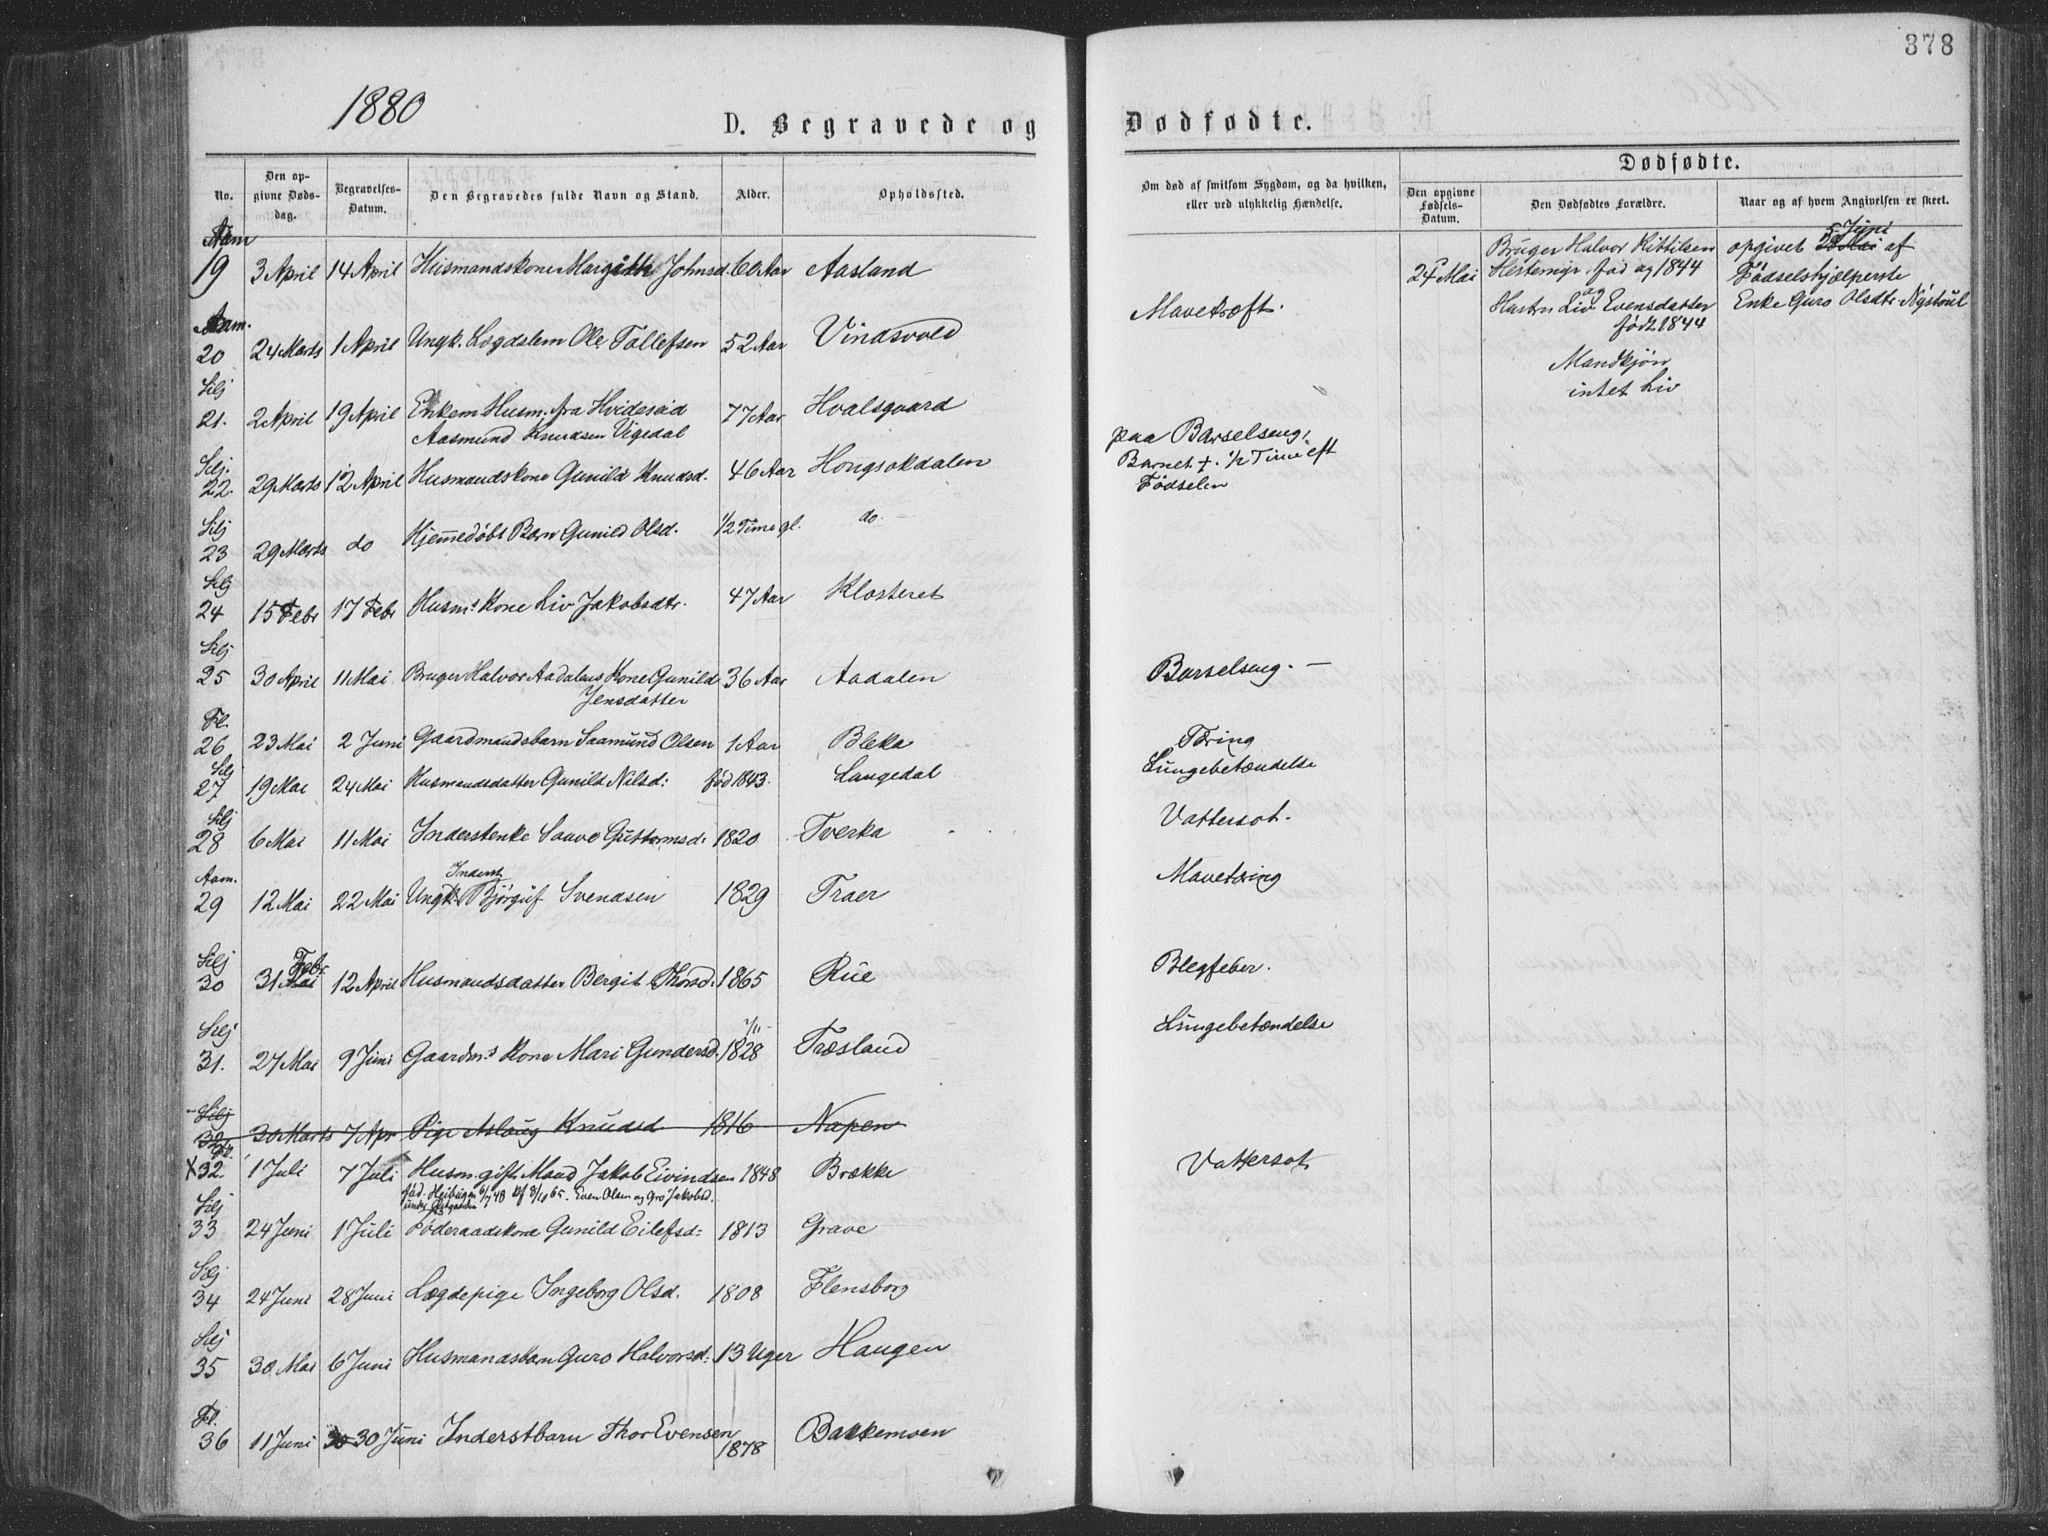 378
1880
D. Begravede og Dødfødte.
No.
Den op-
givne Døds-
dag.
Begravelses-
Datum.
Den Begravedes fulde Navn og Stand.
Alder.
Opholdssted.
Om død af smitsom Sygdom, og da hvilken,
eller ved ulykkelig Hændelse.
Dødfødte.
Den opgivne
Fødsels-
Datum.
Den Dødfødtes Forældre.
Naar og af hvem Angivelsen er skeet.
Aam
19 3 April 14 April Husmandskone Margith Johnsd. 60 Aar Aasland
Aam.
20 24 Marts 1 April Ungk. Lægdslem Ole Tollefsen 52 Aar Vindsvold Mavekræft.
Silj
21. 2 April 19 April Enkem. Husm. fra Hvideseid 77 Aar Hvalsgaard
Aasmund Knudsen Vigedal
Silj.
22. 29 Marts 12 April Husmandskone Gunild Knudsd. 46 Aar Hongsokdalen paa Barselseng,
Barnet †. 1/2 Time eft
Fødselen
Silj
23 29 Marts do Hjemmedøbt Barn Gunild Olsd. 1/2 Time gl. do
Silj
24 15 Febr 17 Febr Husm.s Kone Liv Jakobsdtr. 47 Aar Klosteret
Silj
25 30 April 11 Mai Bruger Halvor Aadalens Kone Gunild 36 Aar Aadalen Barselseng. —
Jensdatter
Fl.
26 23 Mai 2 Juni Gaardmandsbarn Saamund Olsen 1 Aar Bleka Tæring
Silj
27 19 Mai 24 Mai Husmandsdatter Gunild Nilsd: fød 1843. Langedal Lungebetændelse
Silj
28 6 Mai 11 Mai Inderstenke Sauve Guttormsd: 1820 Tverka Vattersot.
Aam.
Inderst
29 12 Mai 22 Mai Ungk. Bjørguf Svendsen 1829 Traer Mavetæring
Silj
Febr
30 31 Mai 12 April Husmandsdatter Bergit Thorsd. 1865 Rue Blegfeber.
Silj
31. 27 Mai 9 Juni Gaardm.s Kone Mari Gundersd. 7/11- 1828 Træsland Lungebetændelse
Silj
32 30 Marts 7 Apr Pige Aslaug Knudsd 1816 Napen
X32. 1 Juli 7 Juli Husm. gift Mand Jakob Eivindsen 1848 Brække Vattersot
fød. Heibugen 6/7 48 Kf 8/10 65. Even Olsen og Gro Jakobsd.
Silj
33 24 Juni 1 Juli Føderaadskone Gunild Eilefsd: 1813 Grave
Silj
34 24 Juni 28 Juni Lægdepige Ingeborg Olsd. 1808 Flensborg
Silj
35 30 Mai 6 Juni Husmandsbarn Guro Halvorsd: 13 Uger Haugen
Fl.
36 11 Juni 30 Juni Inderstbarn Thor Evensen 1878 Bakkemoen
24 Mai
Bruger Halvor Kittilsen
Hestemyr fød og 1844
og
Hustru Liv Evensdatter
født 1844
Mandkjøn
intet Liv
5 Juni
opgivet 28 Mai af
Fødselshjælperske
Enke Guro Olsdtr Nystoul